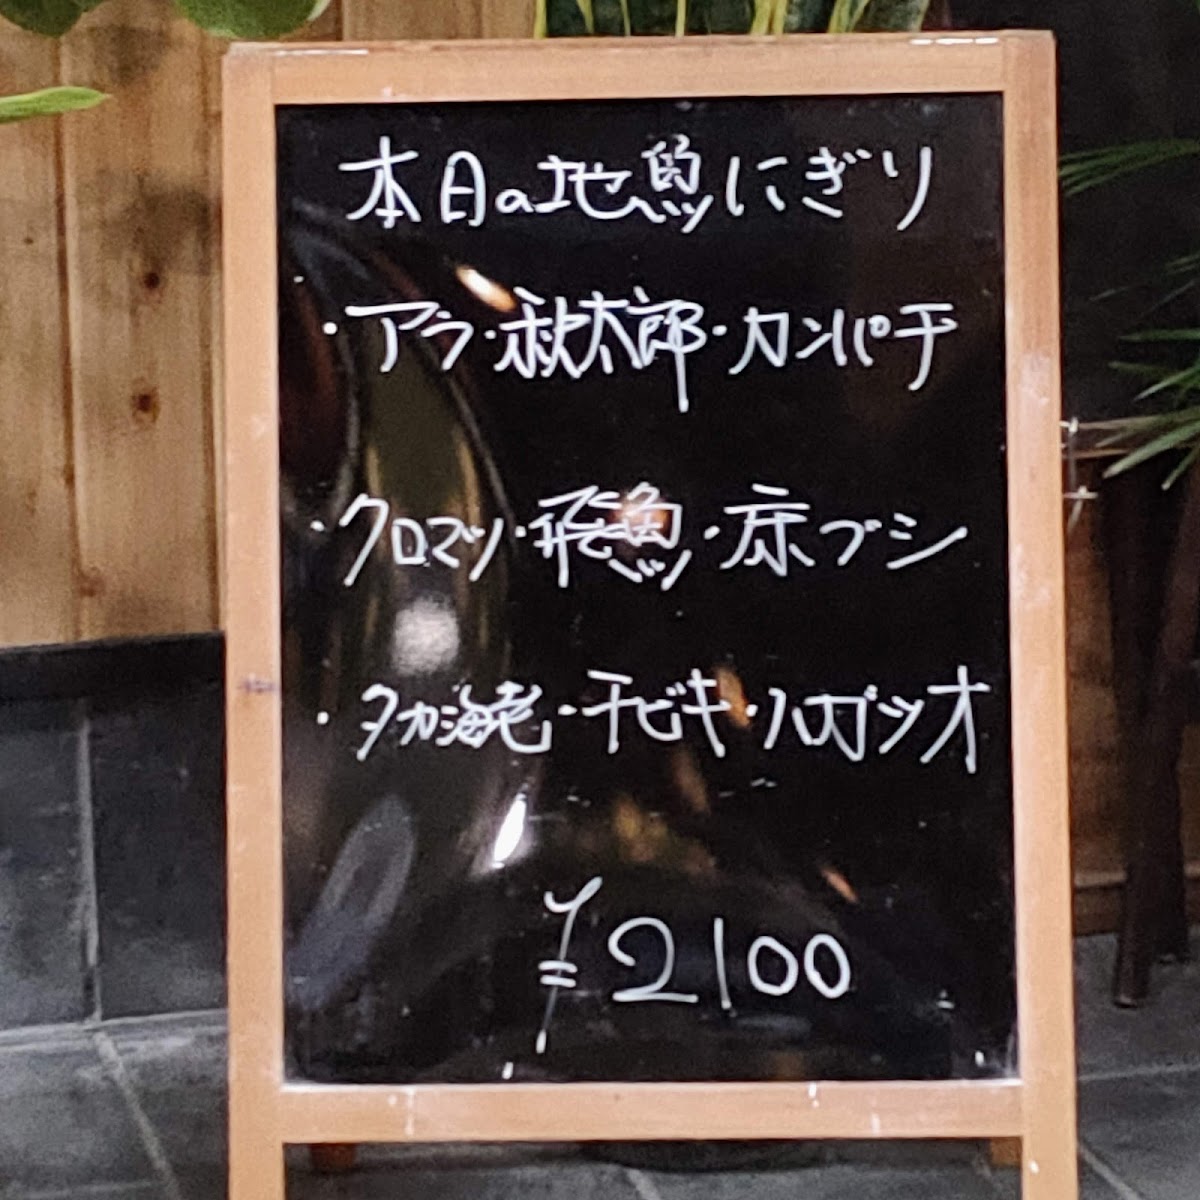 本日の地魚にぎり
・アラ・秋太郎・カンパチ
・クロマツ・飛魚・床ブシ
・タカ海老・チビキ・ハガツオ
¥2100